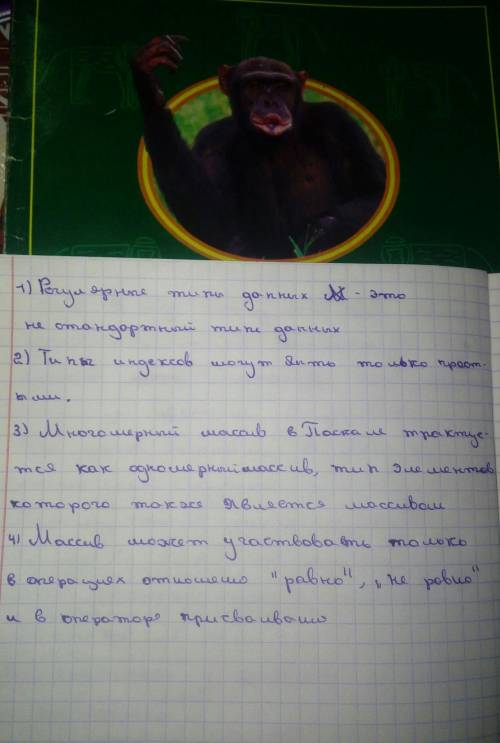 1) Регулярные типы данных - это
не стандартный типе данных
2) Типы индексов могут быть только прост-
ыми.
3) Многомерный массив в Паскале трактуе-
тся как одномерный массив, тип элементов
которого также является массивом
4) Массив может участвовать только
в операциях отношено "равно", "не ровно"
и в операторе присваивано